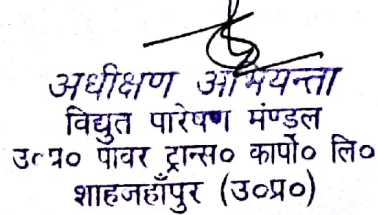 अधीक्षण अभियन्ता
विद्युत पारेषण मंण्डल
उ०प्र० पावर ट्रान्स० कार्पो० लि०
शाहजहाँपुर (उ०प्र०)